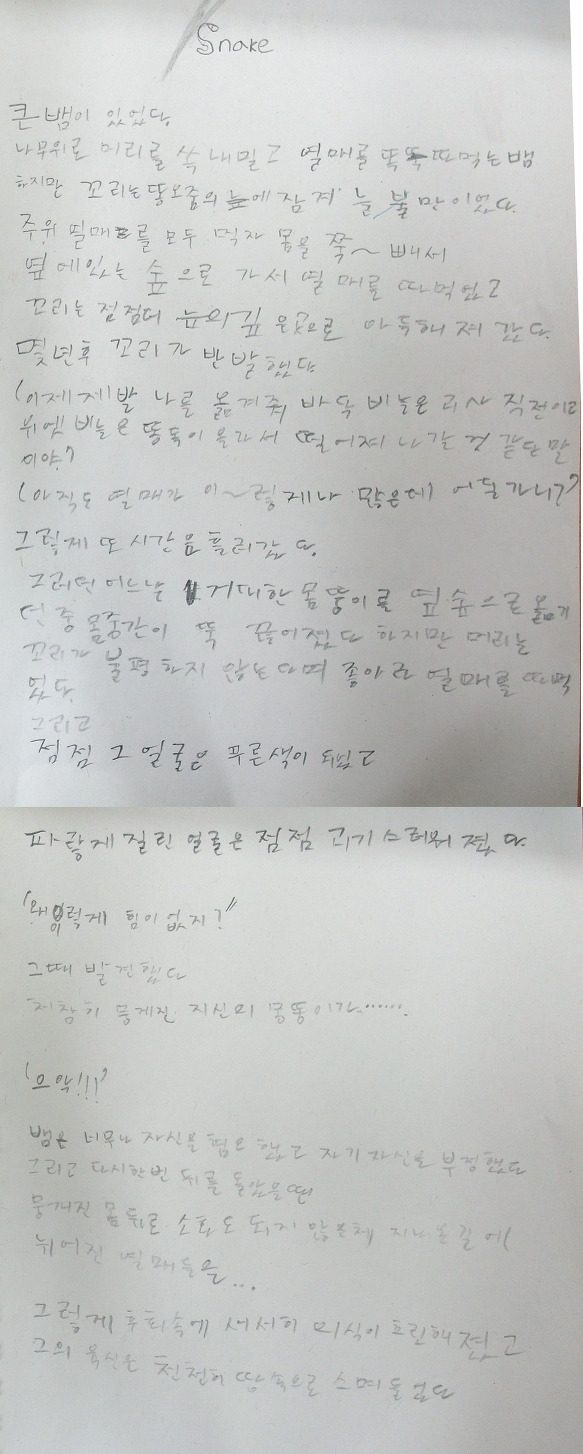 Snake
큰 뱀이 있었다.
나무위로 머리를 쏙 내밀고 열매를 똑똑 따먹는 뱀
하지만 꼬리는 똥오줌의 늪에 잠겨 늘 불만이었다.
주위 열매를 모두 먹자 몸을 쭉~ 빼서
옆에있는 숲으로 가서 열매를 따먹었고
꼬리는 점점더 늪의 깊은곳으로 아득해져 갔다.
몇년후 꼬리가 반발했다.
(이제 제발 나를 옮겨줘 바닥 비늘은 괴사 직전이고
위엣 비늘은 똥독이 올라서 떨어져 나갈 것 같단 말
이야?
(아직도 열매가 이~렇게나 많은데 어딜가니?)
그렇게 또 시간은 흘러갔다.
그러던 어느날 거대한 몸뚱이를 옆숲으로 옮기
던 중 몸중간이 뚝 끊어졌다 하지만 머리는
꼬리가 불평하지 않는다며 좋아라 열매를 따먹
었다.
그리고
점점 그 얼굴은 푸른색이 되었고
파랗게 질린 얼굴은 점점 괴기스러워 졌다.
"왜 이렇게 힘이없지?"
그때 발견했다
처참히 뭉게진 자신의 몸뚱이가.......
'으악!!!'
뱀은 너무나 자신을 혐오했고 자기 자신을 부정했다
그리고 다시한번 뒤를 돌았을땐
뭉게진 몸 뒤로 소화도 되지 않은체 지나온길에
늬어진 열매들은...
그렇게 후회속에 서서히 의식이 흐릿해졌고
그의 육신은 천천히 땅속으로 스며들었다